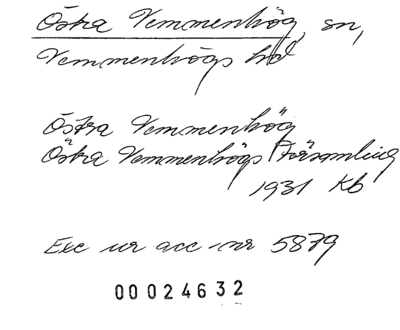 Östra Vemmenhög, sn,
Vemmenhögs hd
Östra Vemmenhög
Östra Vemmenhögs Församling
1931 Kb
Exc ur acc-nr 5879
00024632